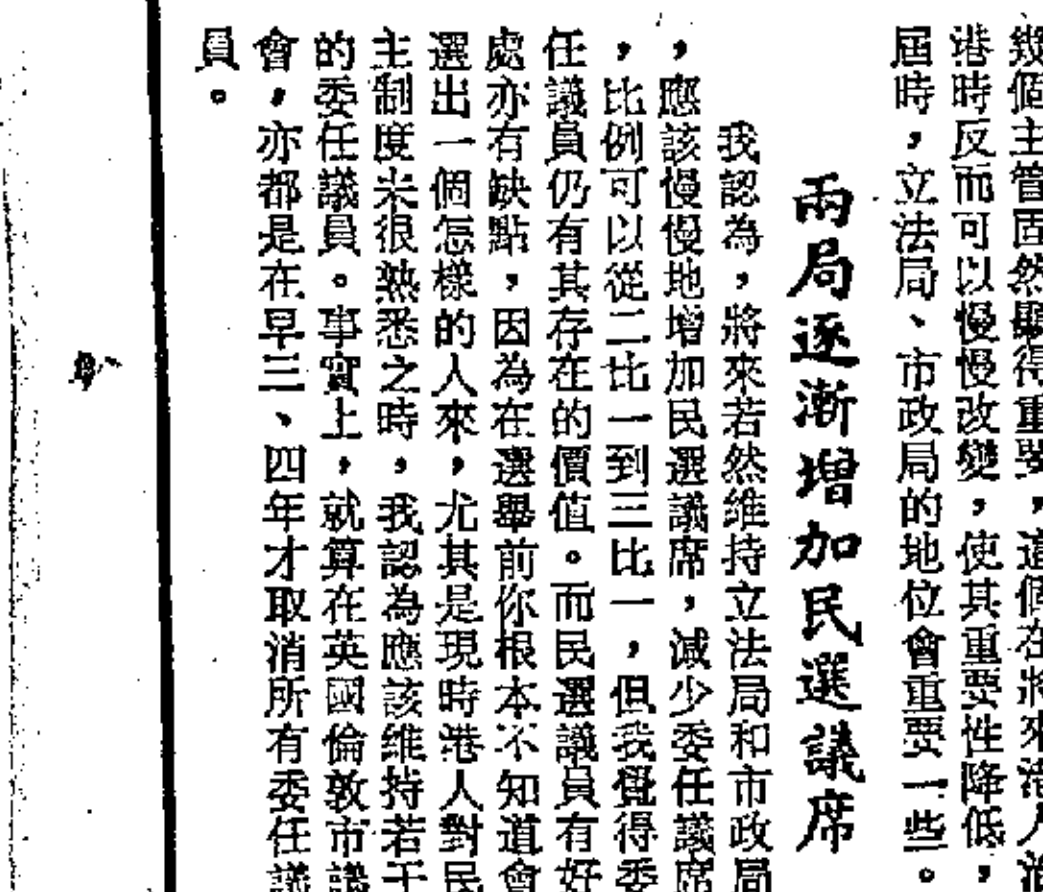 幾個主管固然顯得重要，這個在將來港人治
港時反而可以慢慢改變，使其重要性降低，
屆時，立法局、市政局的地位會重要一些。
兩局逐漸增加民選議席
我認為，將來若然維持立法局和市政局
，應該慢慢地增加民選議席，減少委任議席
，比例可以從二比一到三比一，但我覺得委
任議員仍有其存在的價值。而民選議員有好
處亦有缺點，因為在選舉前你根本不知道會
選出一個怎樣的人來，尤其是現時港人對民
主制度未很熟悉之時，我認為應該維持若干
的委任議員。事實上，就算在英國倫敦市議
會，亦都是在早三、四年才取消所有委任議
員。